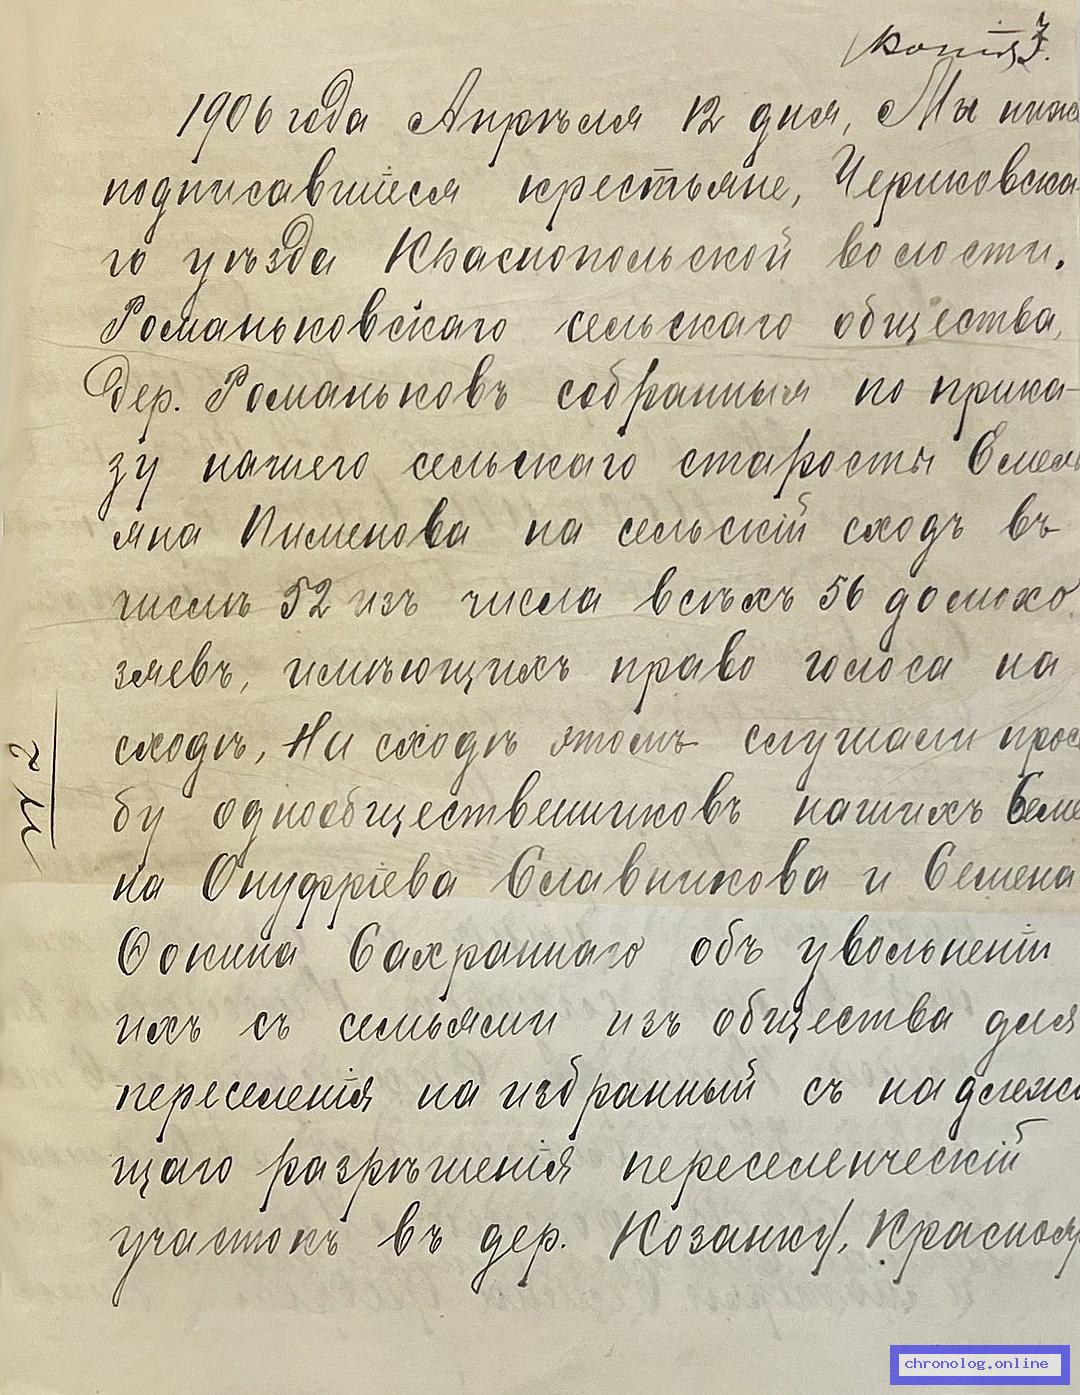 Копія 3.
1906 года Апрѣля 12 дня, Мы ниже
подписавшіеся крестьяне, Чериковска
го уѣзда Краснопольской волости,
Романьковскаго сельскаго общества,
дер. Романьковъ собранныя по прика-
зу нашего сельскаго старосты Емель
яна Пименова на сельскій сходъ въ
числѣ 52 изъ числа всѣхъ 56 домохо
зяевъ, имѣющихъ право голоса на
сходѣ, На сходѣ этомъ слушали прось
бу однообщественниковъ нашихъ Семе
на Онуфріева Славникова и Семена
Фокина Сахраннаго объ увольненіи
ихъ съ семьями изъ общества для
переселенія на избранный съ надлежа
щаго разрѣшенія переселенческій
участокъ въ дер. Козанку, Краснояр
№ 2
chronolog.online